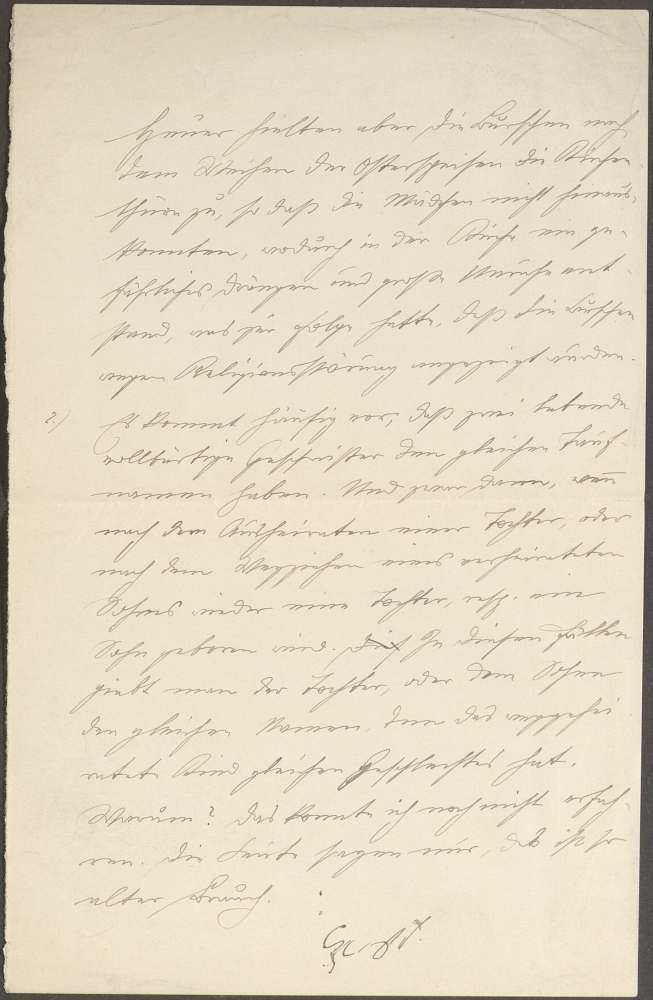 Heuer hielten aber die Burschen nach
dem Weihen der Osterspeisen die Kirchen-
thüre zu, so daß die Mädchen nicht heraus-
konnten, wodurch in der Kirche ein ge-
fährliches Drängen und große Unruhe ent-
stand, was zur Folge hatte, daß die Burschen
wegen Religionsstörung angezeigt wurden.
2.) Es kommt häufig vor, daß zwei lebende
vollbürtige Geschwister den gleichen Tauf-
namen haben. Und zwar dann, wenn
nach dem Ausheiraten einer Tochter, oder
nach dem Wegziehen eines verheirateten
Sohnes wieder eine Tochter, resp. ein
Sohn geboren wird. In diesen Fällen
giebt man der Tochter, oder dem Sohne
den gleichen Namen, den das weggehei-
ratete Kind gleichen Geschlechtes hat.
Warum? Das konnte ich noch nicht erfah-
ren. Die Leute sagen nur, das ist so
alter Brauch.